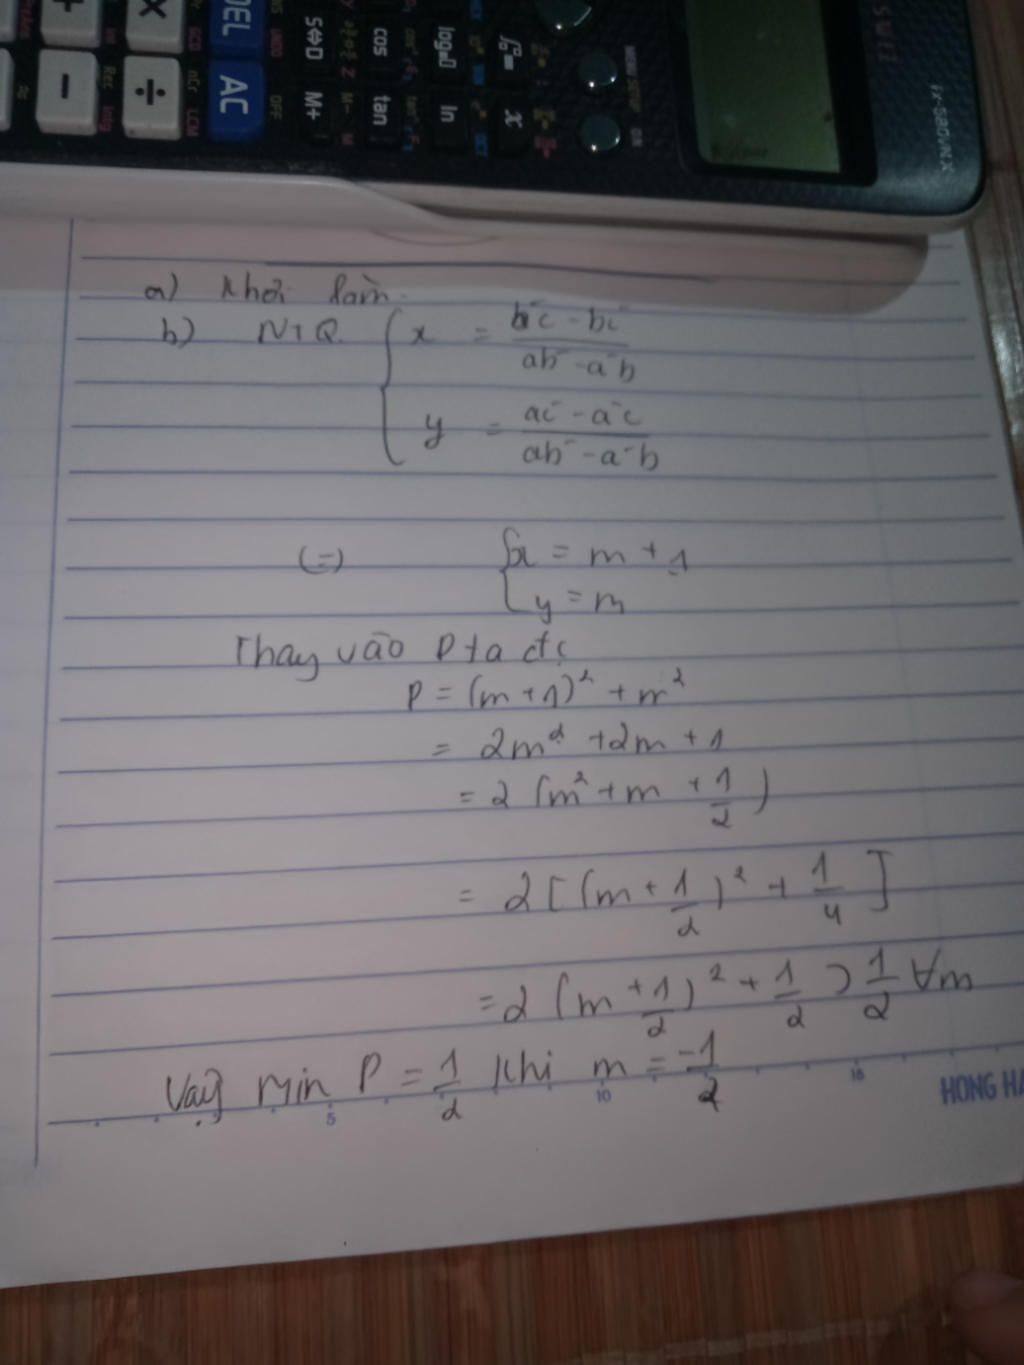 DEL
AC
S⇔D
M+
cos
tan
ln
x
MENU SETUP
ON
OFF
fx-580VN X
a) Khỏi làm.
b) NTQ. { x = b'c - bc' / ab' - a'b
y = ac' - a'c / ab' - a'b
(=) { x = m + 1
y = m
Thay vào P ta đc
P = (m + 1)² + m²
= 2m² + 2m + 1
= 2 (m² + m + 1/2)
= 2 [(m + 1/2)² + 1/4]
= 2 (m + 1/2)² + 1/2 ⩾ 1/2 ∀m
Vậy min P = 1/2 khi m = -1/2
5 10 15 HONG HA